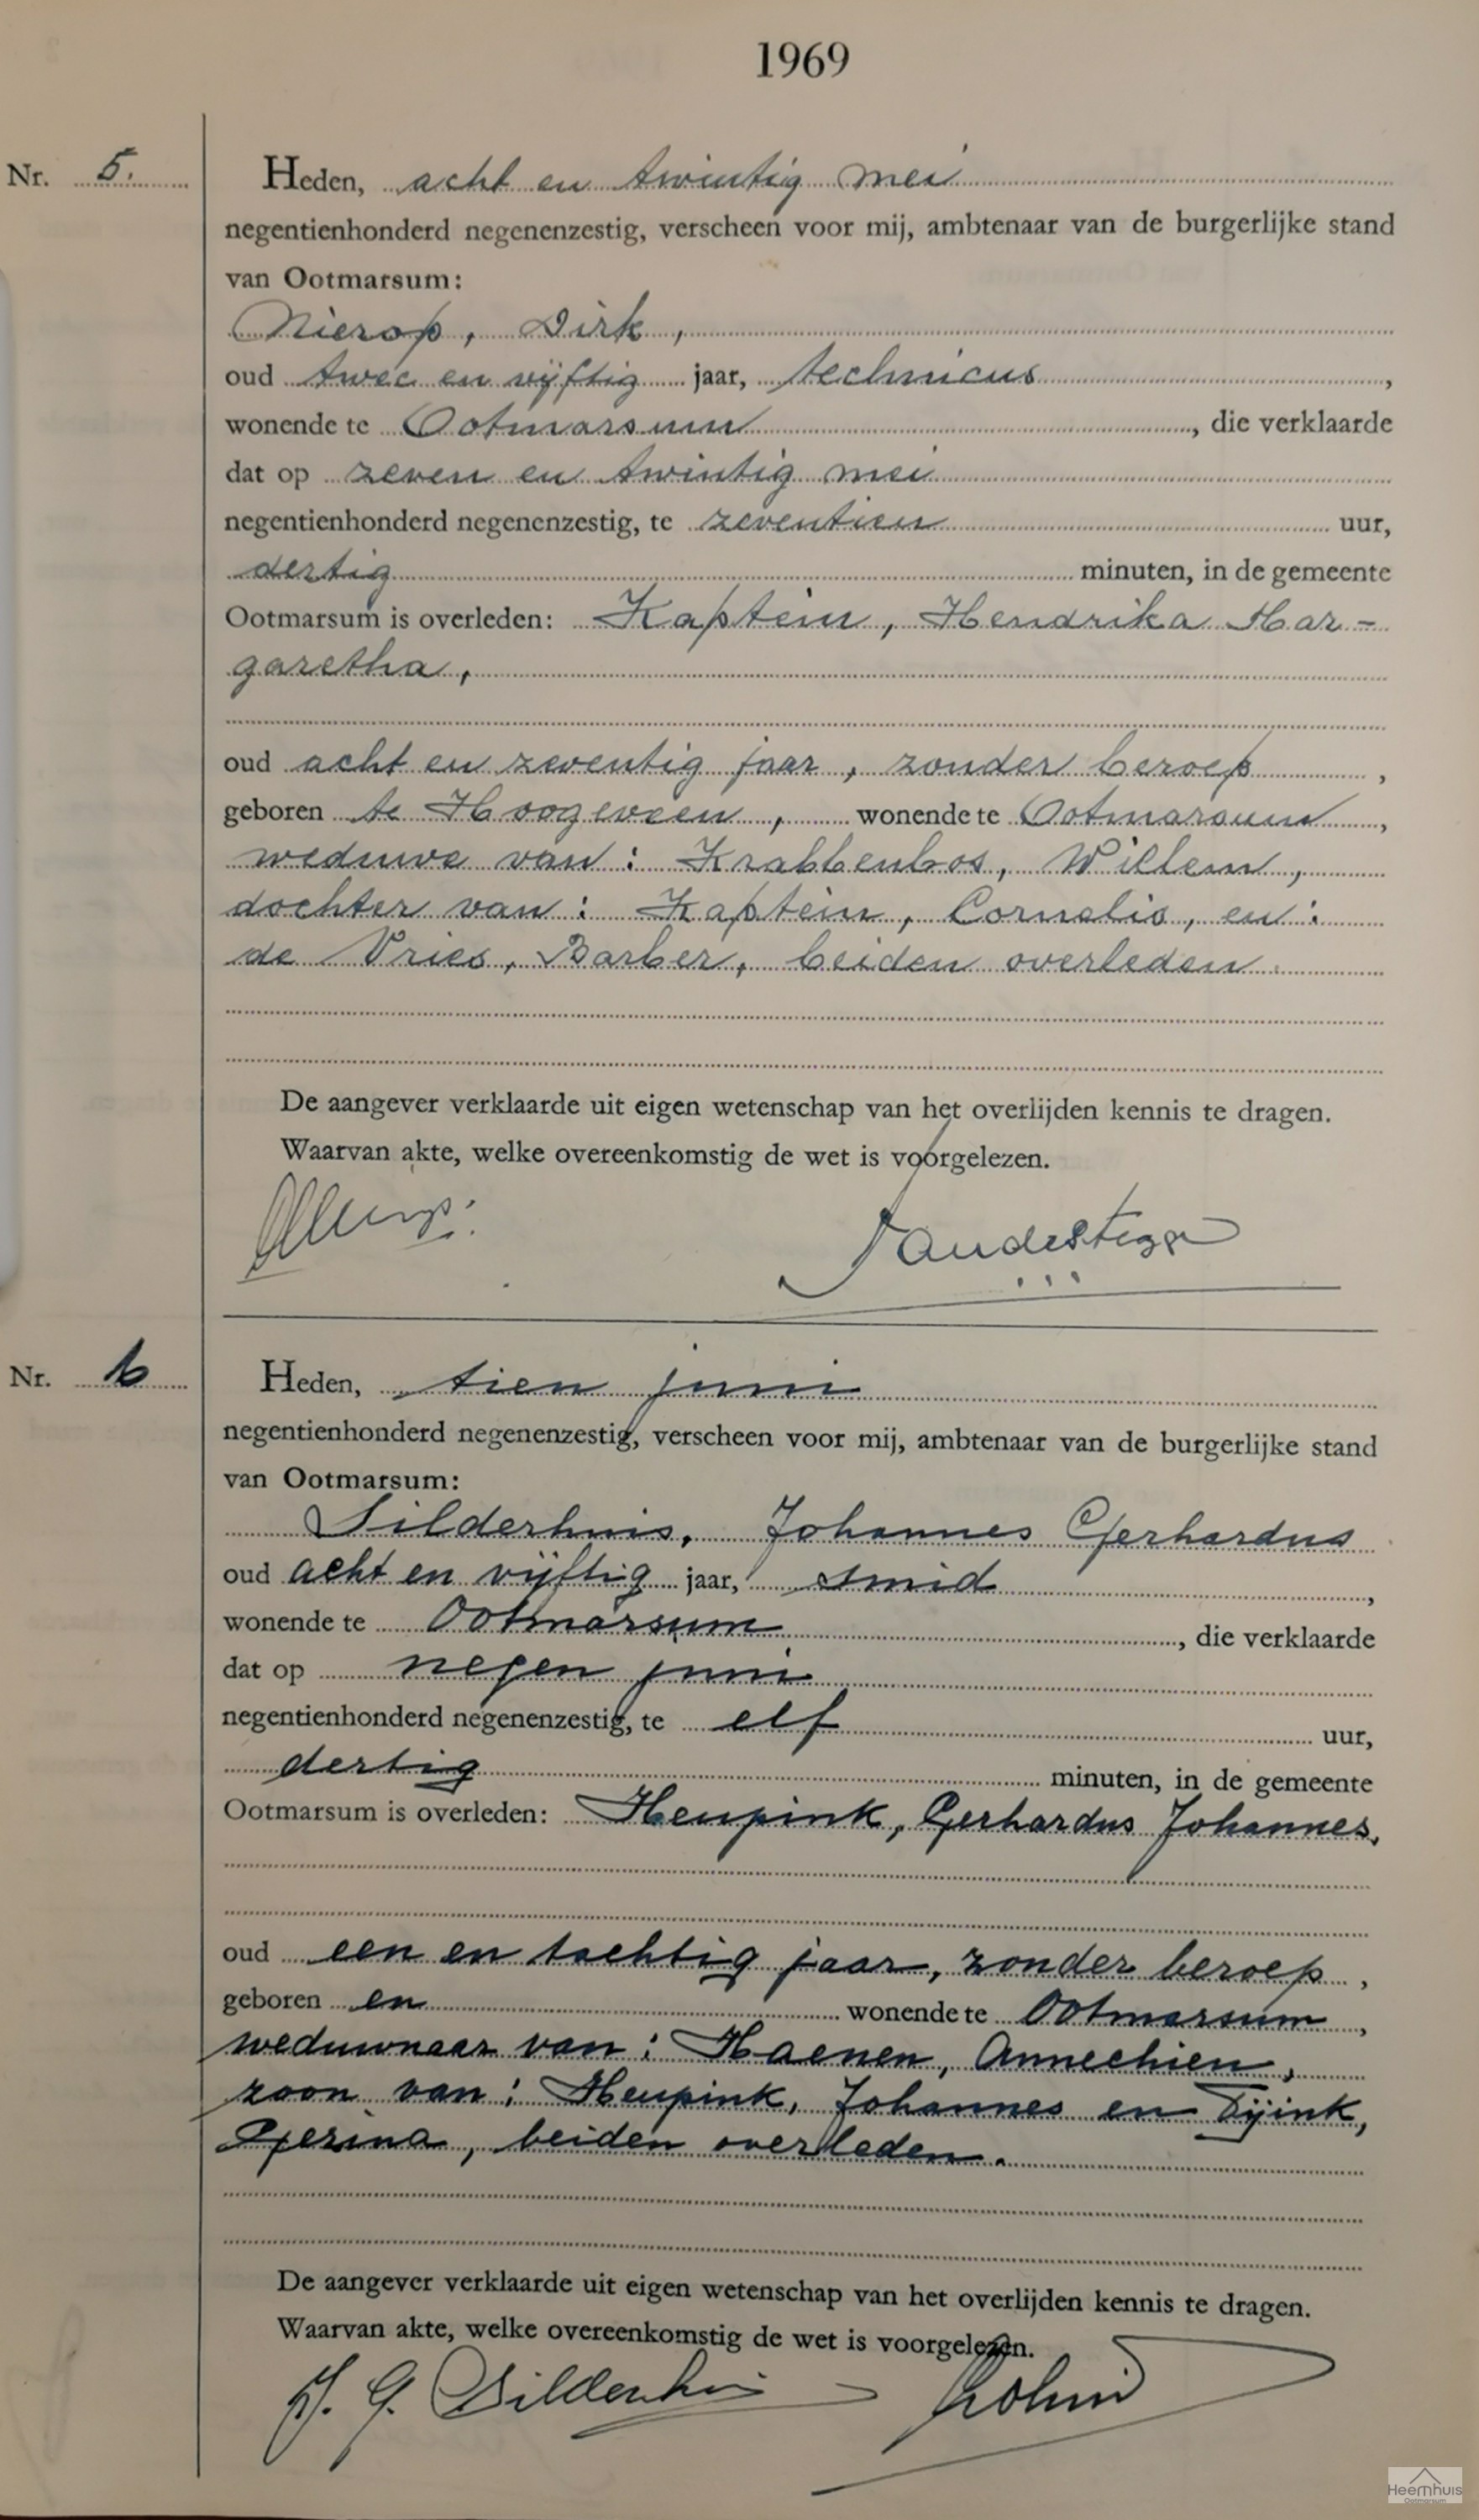 1969
Nr. 5.
Heden, acht en twintig mei
negentienhonderd negenenzestig, verscheen voor mij, ambtenaar van de burgerlijke stand
van Ootmarsum:
Nierop, Dirk,
oud twee en vijftig jaar, technicus,
wonende te Ootmarsum, die verklaarde
dat op zeven en twintig mei
negentienhonderd negenenzestig, te zeventien uur,
dertig minuten, in de gemeente
Ootmarsum is overleden: Kaptein, Hendrika Mar-
garetha,
oud acht en zeventig jaar, zonder beroep,
geboren te Hoogeveen, wonende te Ootmarsum,
weduwe van: Krabbenbos, Willem,
dochter van: Kaptein, Cornelis, en:
de Vries, Barber, beiden overleden.
De aangever verklaarde uit eigen wetenschap van het overlijden kennis te dragen.
Waarvan akte, welke overeenkomstig de wet is voorgelezen.
Nr. 6
Heden, tien juni
negentienhonderd negenenzestig, verscheen voor mij, ambtenaar van de burgerlijke stand
van Ootmarsum:
Silderhuis, Johannes Gerhardus
oud acht en vijftig jaar, smid,
wonende te Ootmarsum, die verklaarde
dat op negen juni
negentienhonderd negenenzestig, te elf uur,
dertig minuten, in de gemeente
Ootmarsum is overleden: Heupink, Gerhardus Johannes,
oud een en tachtig jaar, zonder beroep,
geboren en wonende te Ootmarsum,
weduwnaar van: Haenen, Annechien,
zoon van: Heupink, Johannes en Tijink,
Gerina, beiden overleden.
De aangever verklaarde uit eigen wetenschap van het overlijden kennis te dragen.
Waarvan akte, welke overeenkomstig de wet is voorgelezen.
J. G. Silderhuis
Heemhuis
Ootmarsum